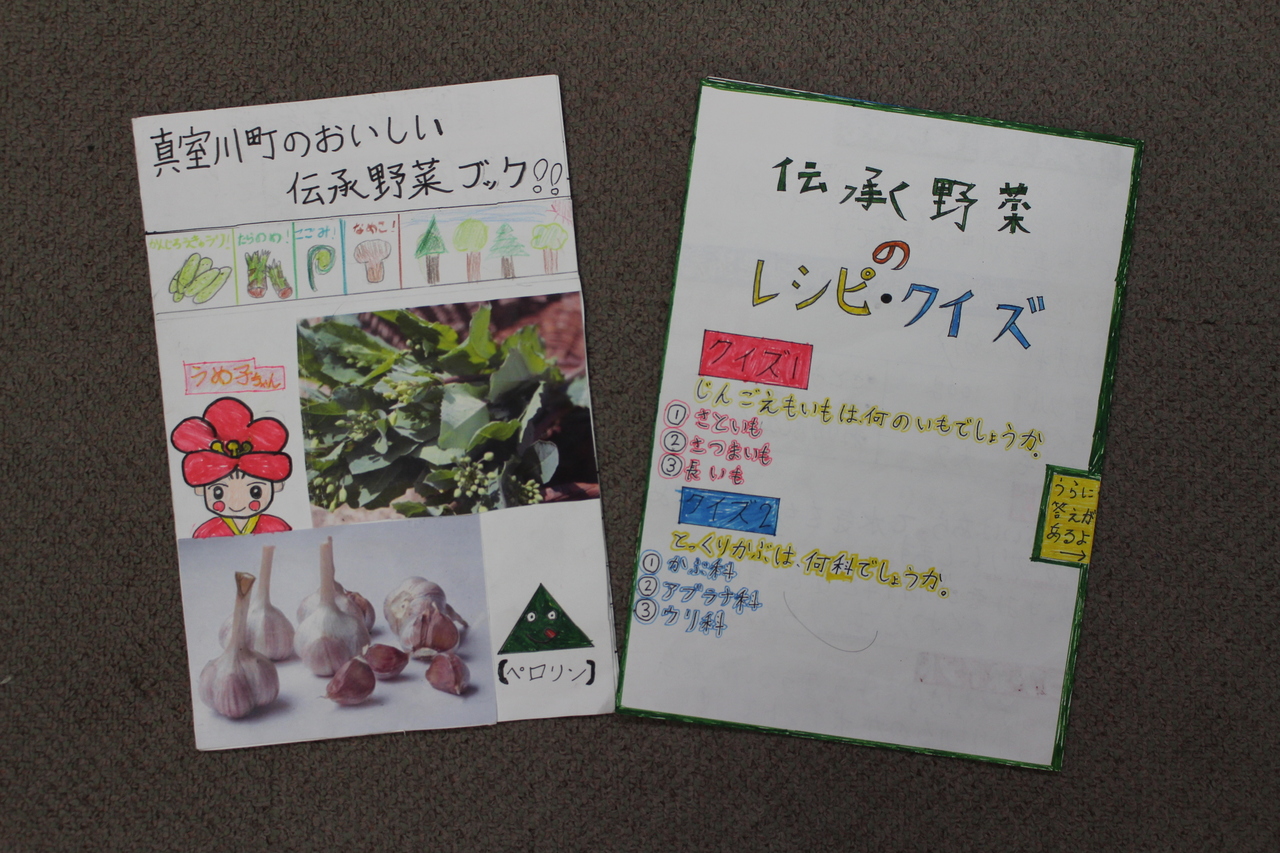 真室川町のおいしい
伝承野菜ブック!!
かんじろうきゅうり!
たらのめ!
こごみ!
なめこ!
うめ子ちゃん
[ペロリン]
伝承野菜
の
レシピ・クイズ
クイズ1
じんごえもいもは、何のいもでしょうか。
① さといも
② さつまいも
③ 長いも
クイズ2
とっくりかぶは、何科でしょうか。
① かぶ科
② アブラナ科
③ ウリ科
うらに
答えが
あるよ
→